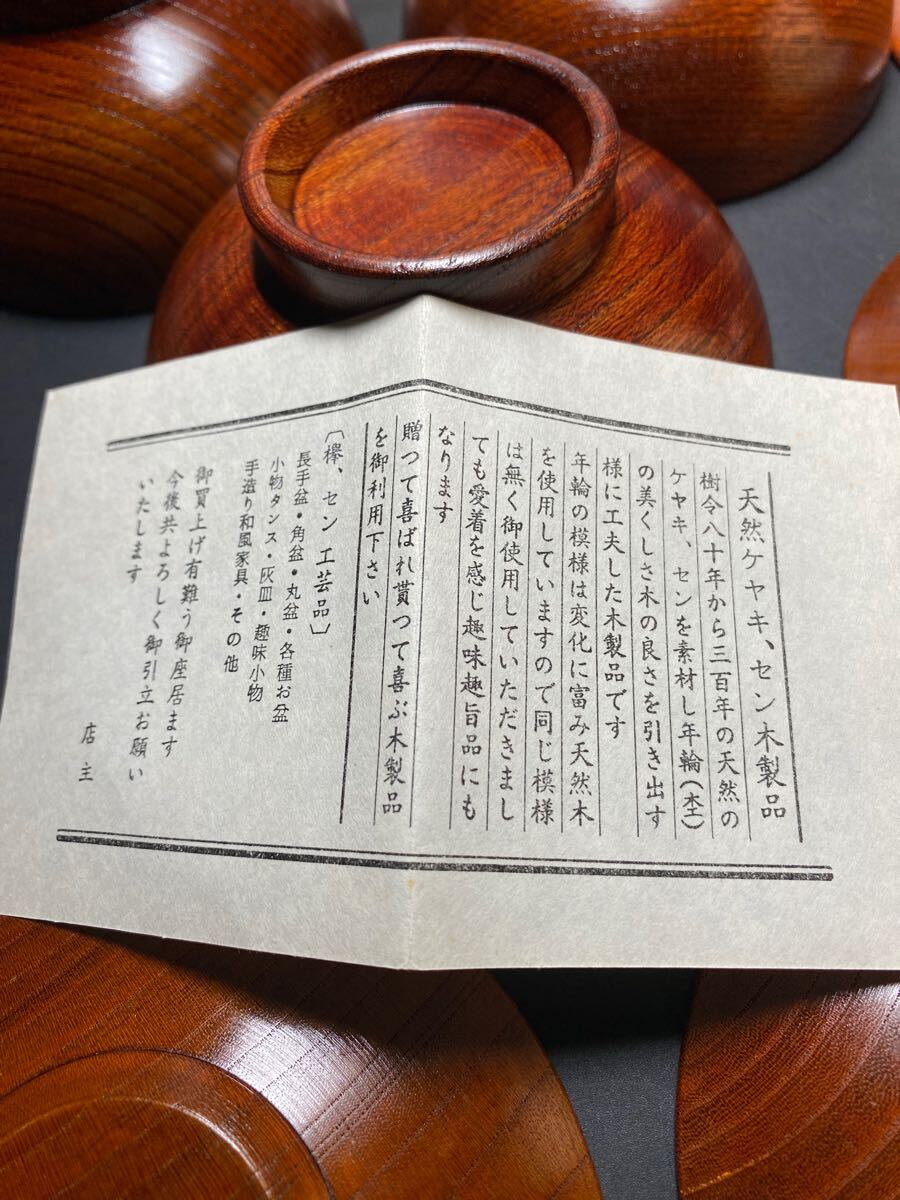 天然ケヤキ、セン木製品
樹令八十年から三百年の天然の
ケヤキ、センを素材し年輪(杢)
の美くしさ木の良さを引き出す
様に工夫した木製品です
年輪の模様は変化に富み天然木
を使用していますので同じ模様
は無く御使用していただきまし
ても愛着を感じ趣味趣旨品にも
なります
贈つて喜ばれ貰つて喜ぶ木製品
を御利用下さい
〔欅、セン 工芸品〕
長手盆・角盆・丸盆・各種お盆
小物タンス・灰皿・趣味小物
手造り和風家具・その他
御買上げ有難う御座居ます
今後共よろしく御引立お願い
いたします
店主